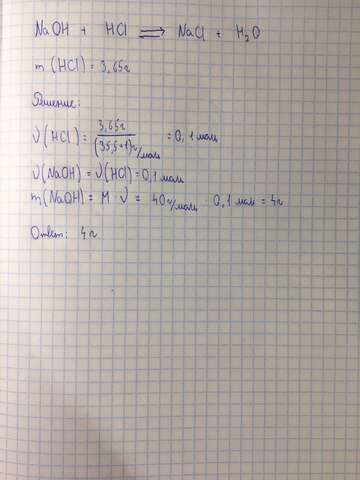 NaOH + HCl ⇌ NaCl + H₂O
m(HCl) = 3,65г
Решение:
ν(HCl) = 3,65г / (35,5+1)г/моль = 0,1 моль
ν(NaOH) = ν(HCl) = 0,1 моль
m(NaOH) = M · ν = 40 г/моль · 0,1 моль = 4г
Ответ: 4 г